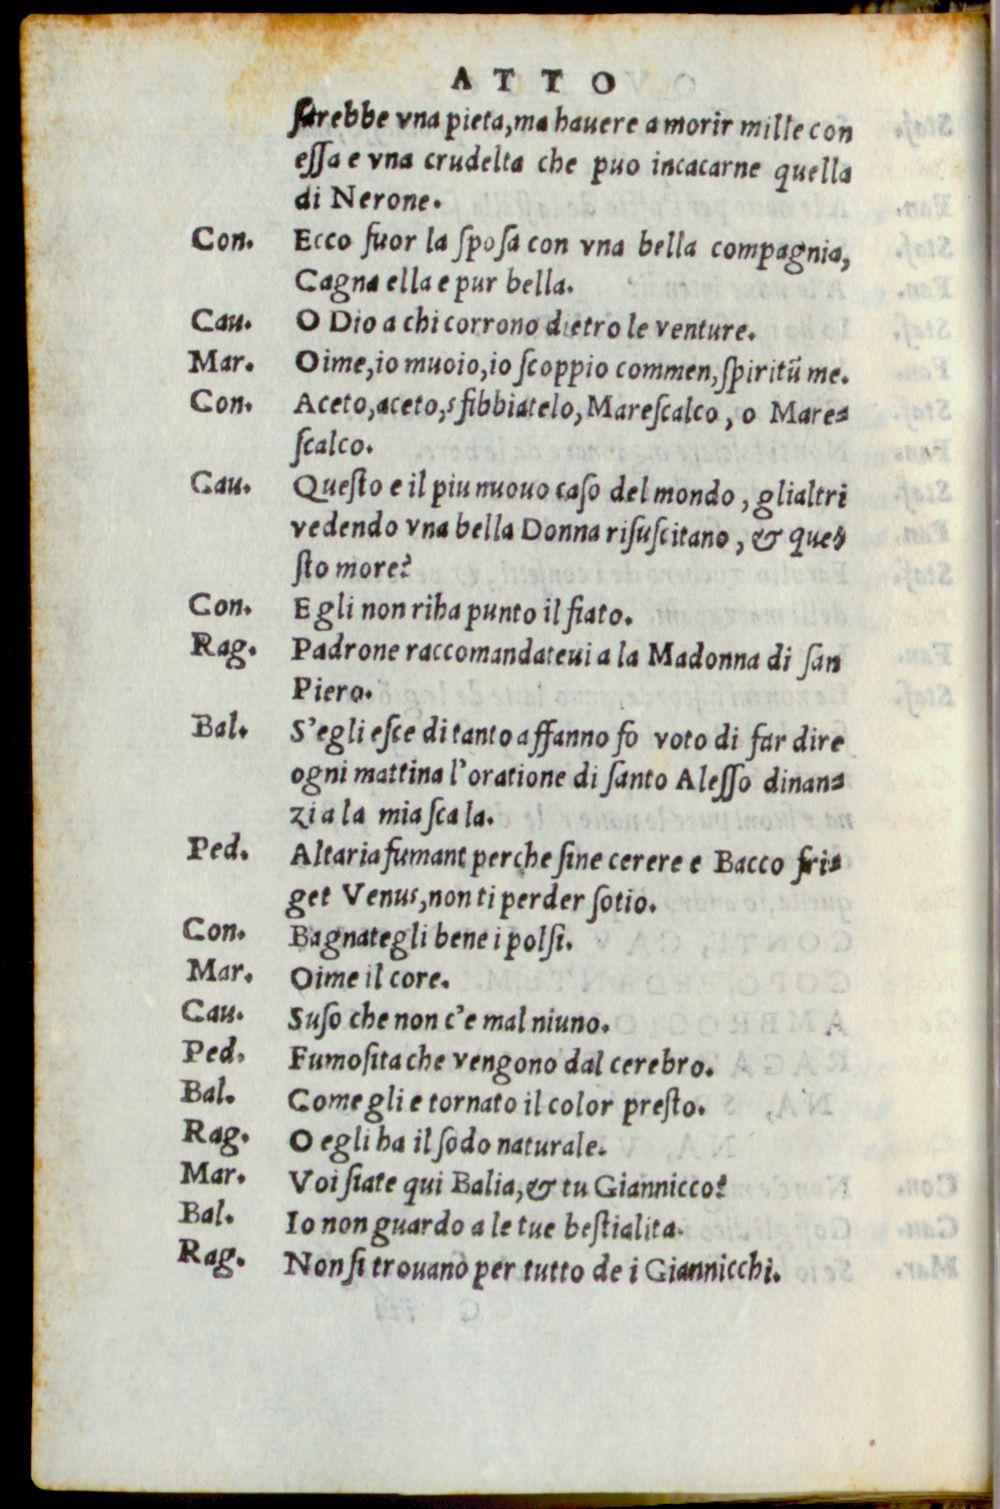 ATTO
sarebbe vna pieta,ma hauere a morir mille con
essa e vna crudelta che puo incacarne quella
di Nerone.
Con. Ecco fuor la sposa con vna bella compagnia,
Cagna ella e pur bella.
Cau. O Dio a chi corrono dietro le venture.
Mar. Oime,io muoio,io scoppio commen,spiritū me.
Con. Aceto,aceto,sfibbiatelo,Marescalco, o Mare-
scalco.
Cau. Questo e il piu nuouo caso del mondo, glialtri
vedendo vna bella Donna risuscitano, & que-
sto more?
Con. Egli non riha punto il fiato.
Rag. Padrone raccomandateui a la Madonna di san
Piero.
Bal. S'egli esce di tanto affanno fo voto di far dire
ogni mattina l'oratione di santo Alesso dinan-
zi a la mia scala.
Ped. Altaria fumant perche sine cerere e Bacco fri-
get Venus,non ti perder sotio.
Con. Bagnategli bene i polsi.
Mar. Oime il core.
Cau. Suso che non c'e mal niuno.
Ped. Fumosita che vengono dal cerebro.
Bal. Come gli e tornato il color presto.
Rag. O egli ha il sodo naturale.
Mar. Voi siate qui Balia,& tu Giannicco?
Bal. Io non guardo a le tue bestialita.
Rag. Non si trouano per tutto de i Giannicchi.